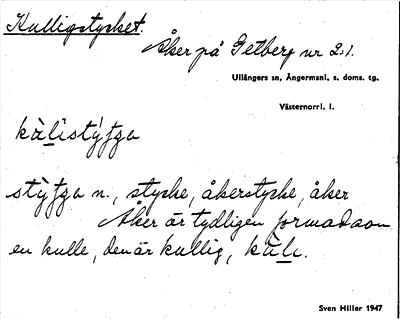 Kulligstycket.
Åker på Getberg nr 2:1.
Ullångers sn, Ångermanl. s. doms. tg.
Västernorrl. l.
kùlistyʹƒʒa
stỳƒʒa n., stycke, åkerstycke, åker
Åker är tydligen formad som
en kulle, den är kullig, kùlı.
Sven Hiller 1947